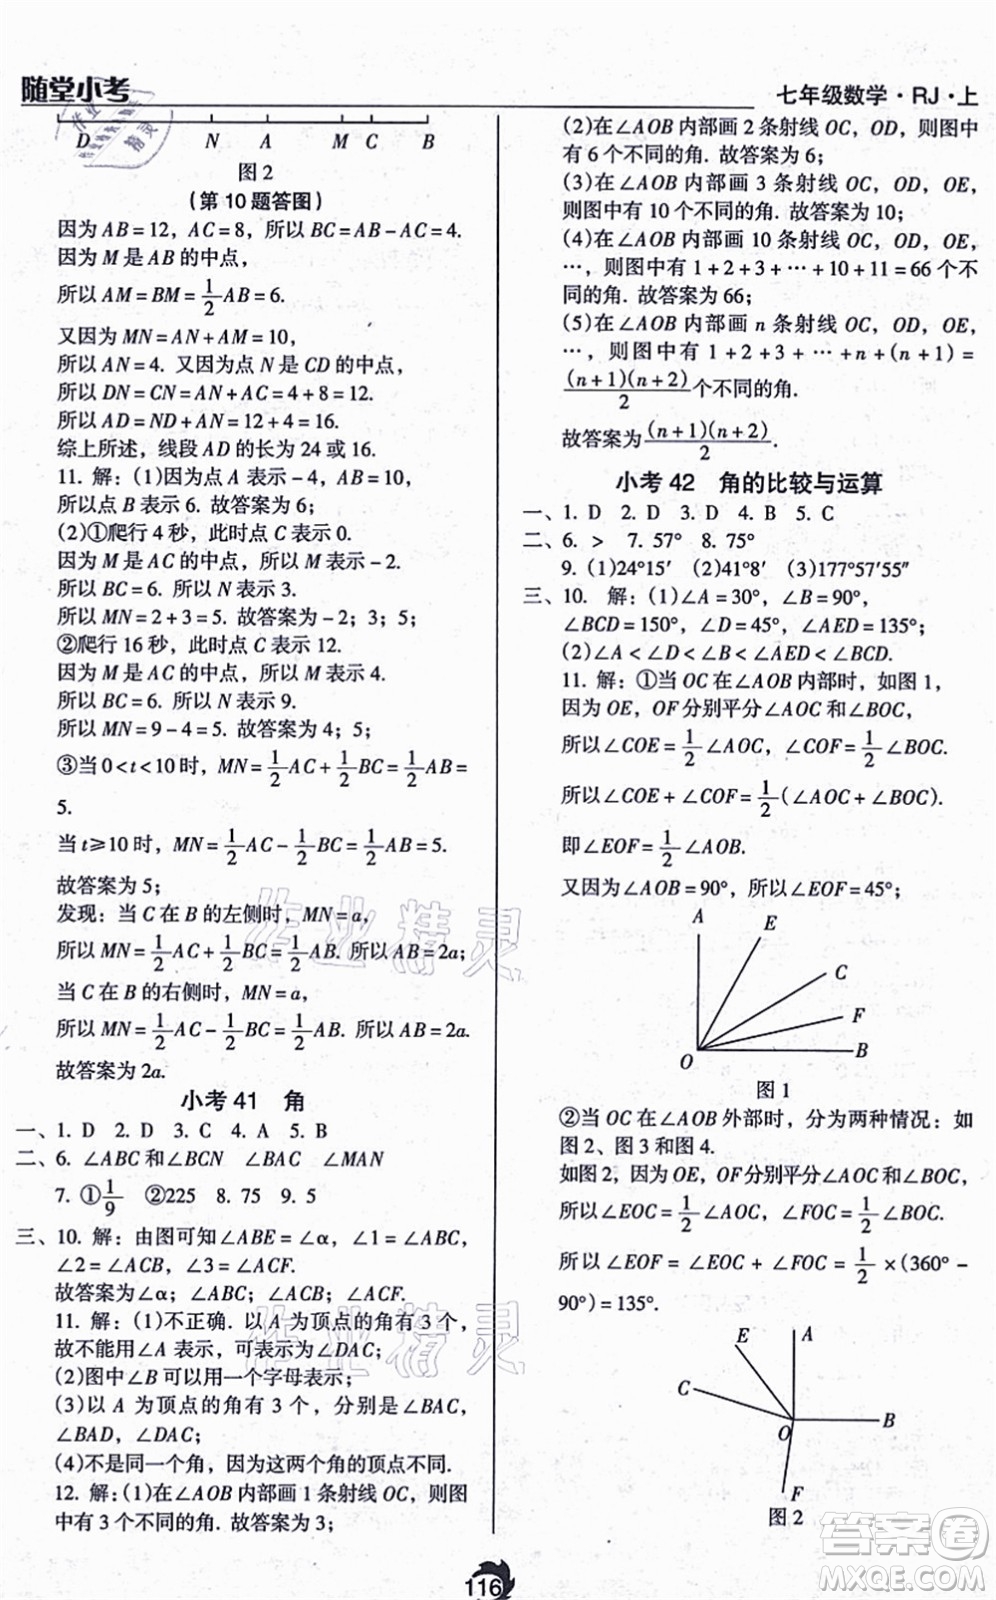 随堂小考
七年级数学·RJ·上
D N A M C B
图2
(第10题答图)
因为AB=12，AC=8，所以BC=AB-AC=4.
因为M是AB的中点，
所以AM=BM=1/2AB=6.
又因为MN=AN+AM=10，
所以AN=4. 又因为点N是CD的中点，
所以DN=CN=AN+AC=4+8=12.
所以AD=ND+AN=12+4=16.
综上所述，线段AD的长为24或16.
11. 解：(1)因为点A表示-4，AB=10，
所以点B表示6. 故答案为6；
(2)①爬行4秒，此时点C表示0.
因为M是AC的中点，所以M表示-2.
所以BC=6. 所以N表示3.
所以MN=2+3=5. 故答案为-2；3；5；
②爬行16秒，此时点C表示12.
因为M是AC的中点，所以M表示4.
所以BC=6. 所以N表示9.
所以MN=9-4=5. 故答案为4；5；
③当0<t<10时，MN=1/2AC+1/2BC=1/2AB=
5.
当t≥10时，MN=1/2AC-1/2BC=1/2AB=5.
故答案为5；
发现：当C在B的左侧时，MN=a，
所以MN=1/2AC+1/2BC=1/2AB. 所以AB=2a；
当C在B的右侧时，MN=a，
所以MN=1/2AC-1/2BC=1/2AB. 所以AB=2a.
故答案为2a.
小考41 角
一、1. D 2. D 3. C 4. A 5. B
二、6. ∠ABC和∠BCN ∠BAC ∠MAN
7. ①1/9 ②225 8. 75 9. 5
三、10. 解：由图可知∠ABE=∠α，∠1=∠ABC，
∠2=∠ACB，∠3=∠ACF.
故答案为∠α；∠ABC；∠ACB；∠ACF.
11. 解：(1)不正确. 以A为顶点的角有3个，
故不能用∠A表示，可表示为∠DAC；
(2)图中∠B可以用一个字母表示；
(3)以A为顶点的角有3个，分别为∠BAC，
∠BAD，∠DAC；
(4)不是同一个角，因为这两个角的顶点不同.
12. 解：(1)在∠AOB内部画1条射线OC，则图
中有3个不同的角. 故答案为3；
(2)在∠AOB内部画2条射线OC，OD，则图中
有6个不同的角. 故答案为6；
(3)在∠AOB内部画3条射线OC，OD，OE，
则图中有10个不同的角. 故答案为10；
(4)在∠AOB内部画10条射线OC，OD，OE，
…，则图中有1+2+3+…+10+11=66个不
同的角. 故答案为66；
(5)在∠AOB内部画n条射线OC，OD，OE，
…，则图中有1+2+3+…+n+(n+1)=
(n+1)(n+2)/2个不同的角.
故答案为(n+1)(n+2)/2.
小考42 角的比较与运算
一、1. D 2. D 3. D 4. B 5. C
二、6. > 7. 57° 8. 75°
9. (1)24°15′ (2)41°8′ (3)177°57′55″
三、10. 解：(1)∠A=30°，∠B=90°，
∠BCD=150°，∠D=45°，∠AED=135°；
(2)∠A<∠D<∠B<∠AED<∠BCD.
11. 解：①当OC在∠AOB内部时，如图1，
因为OE，OF分别平分∠AOC和∠BOC，
所以∠COE=1/2∠AOC，∠COF=1/2∠BOC.
所以∠COE+∠COF=1/2(∠AOC+∠BOC).
即∠EOF=1/2∠AOB.
又因为∠AOB=90°，所以∠EOF=45°；
A
E
C
F
O B
图1
②当OC在∠AOB外部时，分为两种情况：如
图2、图3和图4.
如图2，因为OE，OF分别平分∠AOC和∠BOC，
所以∠EOC=1/2∠AOC，∠FOC=1/2∠BOC.
所以∠EOF=∠EOC+∠FOC=1/2×(360°-
90°)=135°.
E A
C
O B
F
图2
116
作业精灵
作业精灵
作业精灵
答案圈
MXQE.COM